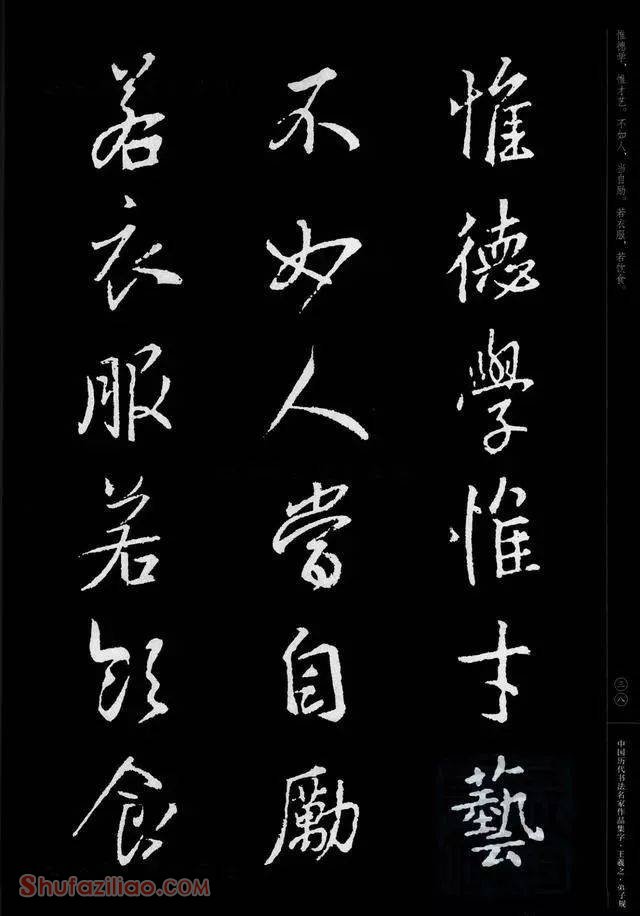 惟德学，惟才艺。不如人，当自励。若衣服，若饮食。
惟德學惟才藝
不如人當自勵
若衣服若飲食
三八
中国历代书法名家作品集字·王羲之·弟子规
Shufaziliao.com